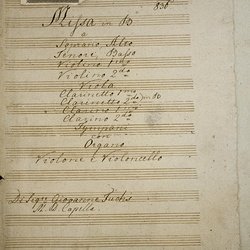 836
Missa in B
a
Soprano, Alto
Tenore, Basso
Violino 1mo
Violino 2do
Viola
Clarinetto 1mo
Clarinetto 2do in B
Clarino 1mo
Clarino 2do
Tympani
con
Organo
Violone e Violoncello
Di Sigre Giovanne Fuchs
Capella